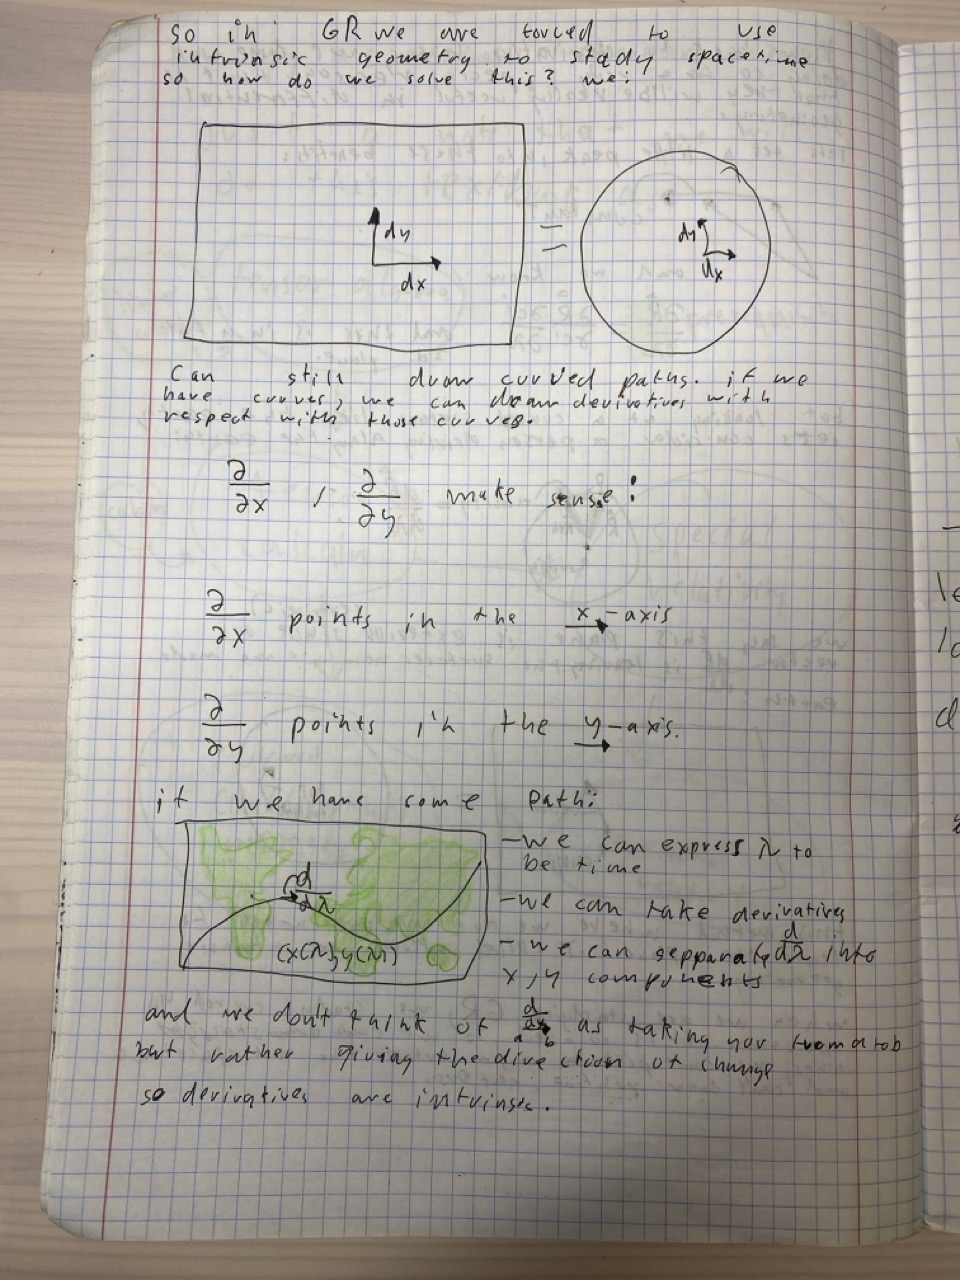 so in GR we are forced to use
intrinsic geometry to study spacetime
so how do we solve this? we:
dy
dx
=
dy
dx
Can still draw curved paths. if we
have curves, we can draw derivatives with
respect with those curves.
∂/∂x , ∂/∂y make sense:
∂/∂x points in the x-axis
∂/∂y points in the y-axis.
if we have some path:
d/dλ
(x(λ), y(λ))
-we can express λ to
be time
-we can take derivatives
-we can sepparate d/dλ into
x, y components
and we don't think of as taking you from a to b
but rather giving the direction of change
so derivatives are intrinsic.